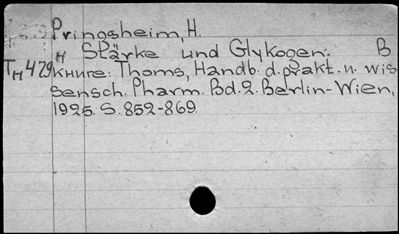 Pringsheim, H.
н Stärke und Glykogen. В
Тн429 книге: Thoms, Handb. d. prakt. u. wis
sensch. Pharm. Bd. 2. Berlin-Wien,
1925. S. 852-869.